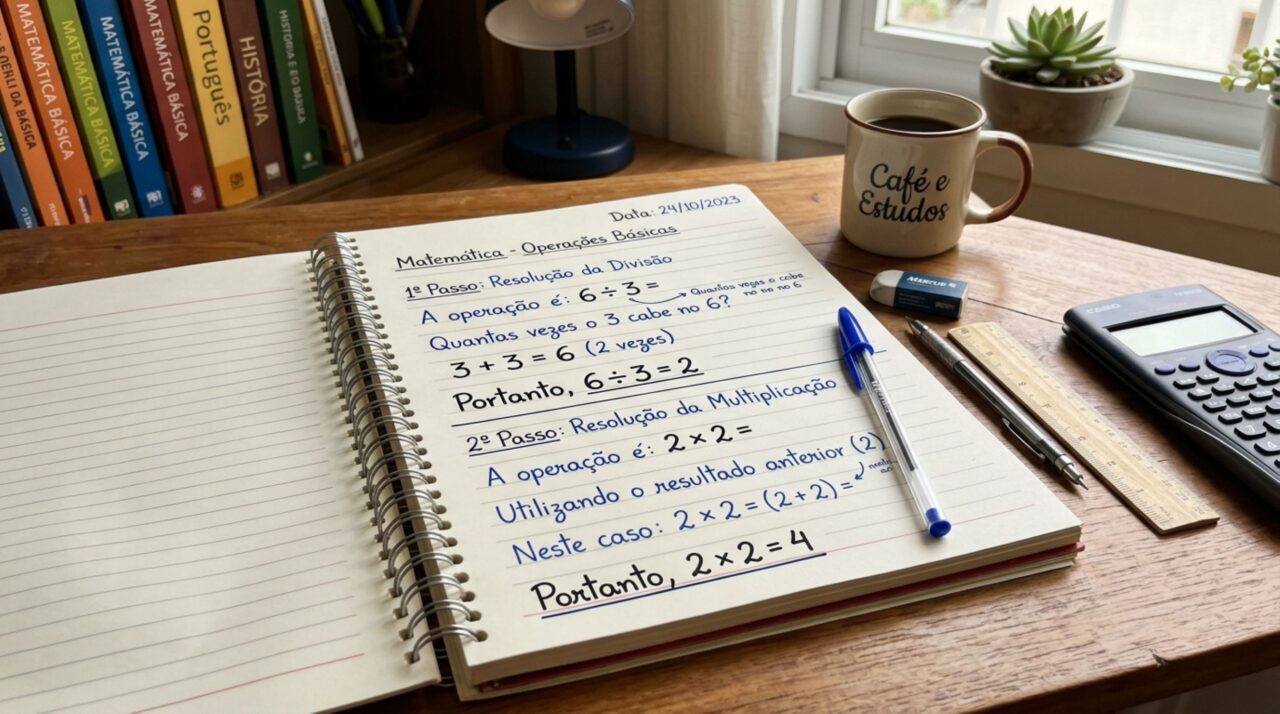 MATEMÁTICA BÁSICA
MATEMÁTICA BÁSICA
MATEMÁTICA BÁSICA
MATEMÁTICA BÁSICA
Português
HISTÓRIA
Café e
Estudos
CASIO
Data: 24/10/2023
Matemática - Operações Básicas
1º Passo: Resolução da Divisão
A operação é: 6 ÷ 3 =
Quantas vezes o cabe
no 6
Quantas vezes o 3 cabe no 6?
3 + 3 = 6 (2 vezes)
Portanto, 6 ÷ 3 = 2
2º Passo: Resolução da Multiplicação
A operação é: 2 × 2 =
Utilizando o resultado anterior (2)
Neste caso: 2 × 2 = (2 + 2) =
Portanto, 2 × 2 = 4